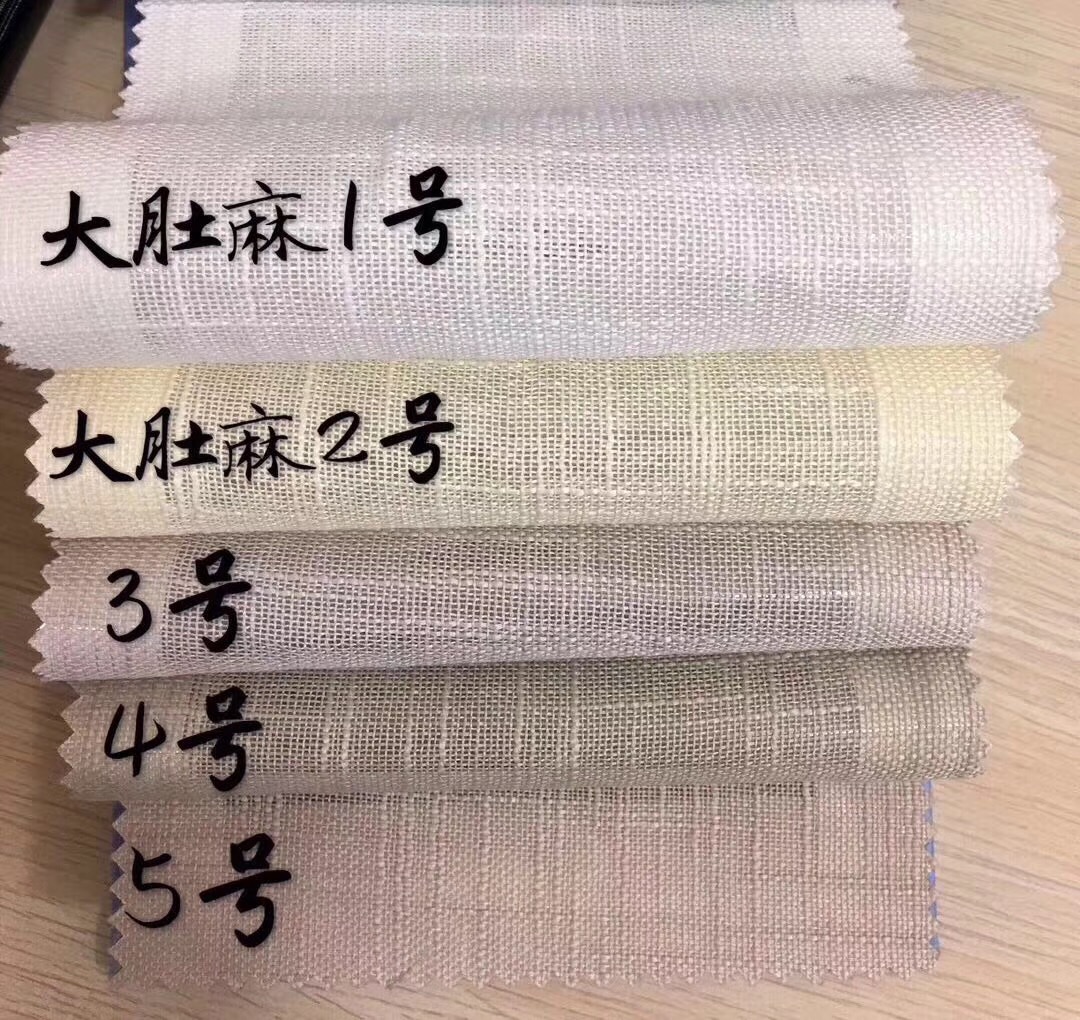 大肚麻1号
大肚麻2号
3号
4号
5号